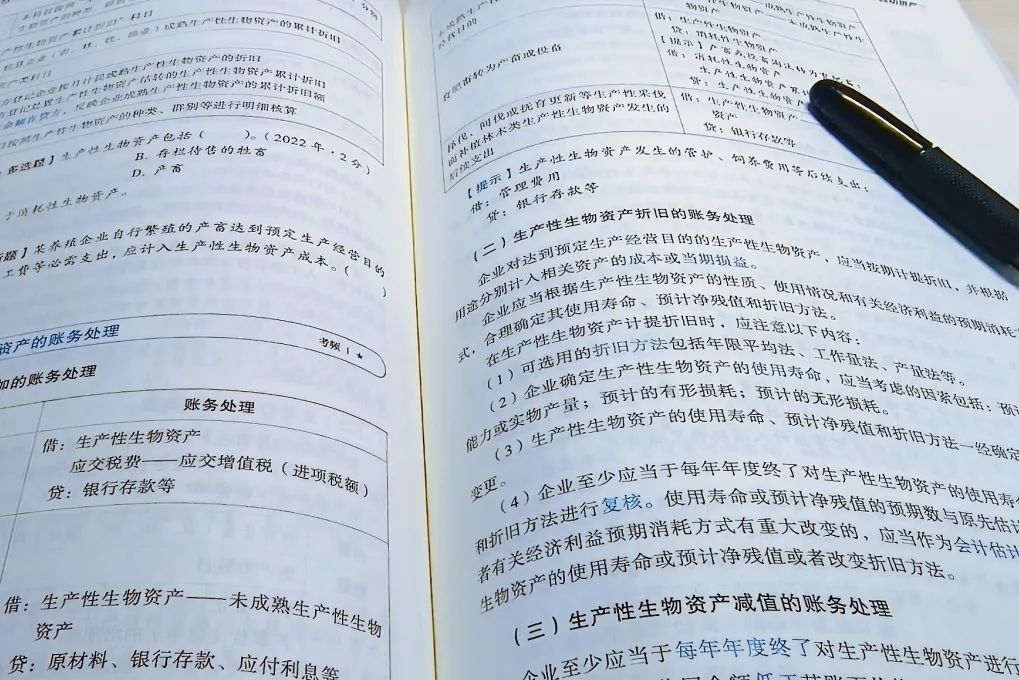 性生物资产累计折旧”科目
成熟生产性生物资产的累计折旧
登记企业按月计提成熟生产性生物资产的折旧
登记处置生产性生物资产结转的生产性生物资产累计折旧
反映企业成熟生产性生物资产的累计折旧额
按照生产性生物资产的种类、群别等进行明细核算
多选题】生产性生物资产包括（ ）。（2022年·2分）
B. 存栏待售的牲畜
D. 产畜
于消耗性生物资产。
题】某养殖企业自行繁殖的产畜达到预定生产经营目的
工费等必需支出，应计入生产性生物资产成本。（
）
资产的账务处理
考频 1 ★
加的账务处理
账务处理
借：生产性生物资产
应交税费——应交增值税（进项税额）
贷：银行存款等
借：生产性生物资产——未成熟生产性生物
资产
贷：原材料、银行存款、应付利息等
育肥畜转为产畜或役畜
借：生产性生物资产
贷：消耗性生物资产
借：消耗性生物资产
择伐、间伐或抚育更新等生产性采伐
而补植林木类生产性生物资产发生的
后续支出
借：生产性生物资产
贷：银行存款等
【提示】生产性生物资产发生的管护、饲养费用等后续支出：
借：管理费用
贷：银行存款等
（二）生产性生物资产折旧的账务处理
企业对达到预定生产经营目的的生产性生物资产，应当按期计提折旧，并根据
用途分别计入相关资产的成本或当期损益。
企业应当根据生产性生物资产的性质、使用情况和有关经济利益的预期消耗
式，合理确定其使用寿命、预计净残值和折旧方法。
在生产性生物资产计提折旧时，应注意以下内容：
（1）可选用的折旧方法包括年限平均法、工作量法、产量法等。
（2）企业确定生产性生物资产的使用寿命，应当考虑的因素包括：预
能力或实物产量；预计的有形损耗；预计的无形损耗。
（3）生产性生物资产的使用寿命、预计净残值和折旧方法一经确定
变更。
（4）企业至少应当于每年年度终了对生产性生物资产的使用寿
和折旧方法进行复核。使用寿命或预计净残值的预期数与原先估计
者有关经济利益预期消耗方式有重大改变的，应当作为会计估计
生物资产的使用寿命或预计净残值或者改变折旧方法。
（三）生产性生物资产减值的账务处理
企业至少应当于每年年度终了对生产性生物资产进行